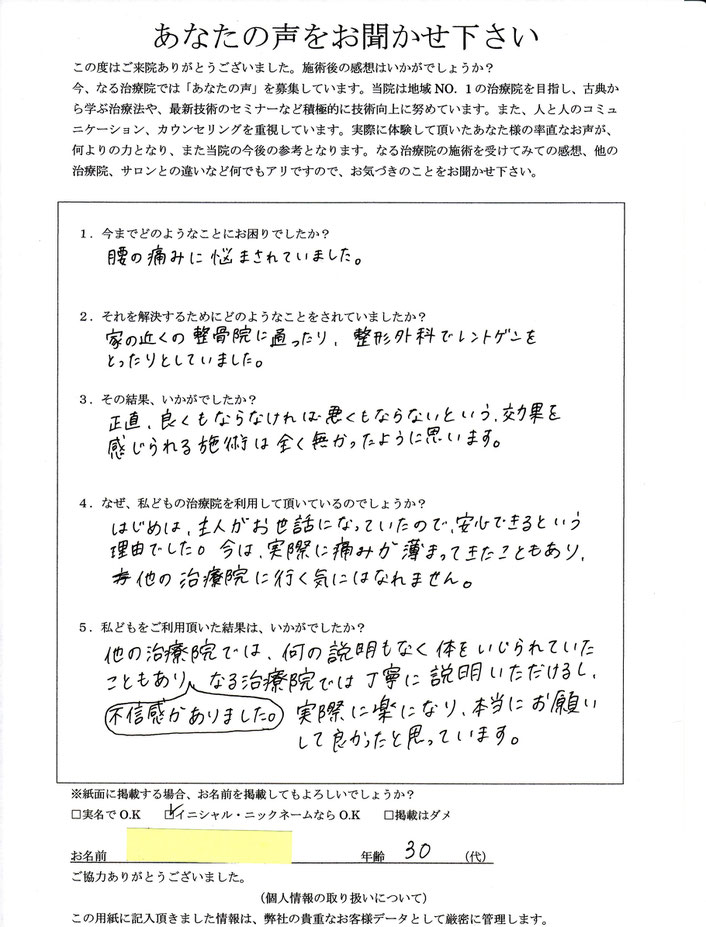 あなたの声をお聞かせ下さい
この度はご来院ありがとうございました。施術後の感想はいかがでしょうか？
今、なる治療院では「あなたの声」を募集しています。当院は地域NO．1の治療院を目指し、古典か
ら学ぶ治療法や、最新技術のセミナーなど積極的に技術向上に努めています。また、人と人のコミュ
ニケーション、カウンセリングを重視しています。実際に体験して頂いたあなた様の率直なお声が、
何よりの力となり、また当院の今後の参考となります。なる治療院の施術を受けてみての感想、他の
治療院、サロンとの違いなど何でもアリですので、お気づきのことをお聞かせ下さい。
1．今までどのようなことにお困りでしたか？
腰の痛みに悩まされていました。
2．それを解決するためにどのようなことをされていましたか？
家の近くの整骨院に通ったり、整形外科でレントゲンを
とったりとしていました。
3．その結果、いかがでしたか？
正直、良くもならなければ悪くもならないという、効果を
感じられる施術は全く無かったように思います。
4．なぜ、私どもの治療院を利用して頂いているのでしょうか？
はじめは、主人がお世話になっていたので、安心できるという
理由でした。今は、実際に痛みが薄まってきたこともあり、
他の治療院に行く気にはなれません。
5．私どもをご利用頂いた結果は、いかがでしたか？
他の治療院では、何の説明もなく体をいじられていた
こともあり、なる治療院では丁寧に説明いただけるし、
不信感がありました。実際に楽になり、本当にお願い
して良かったと思っています。
※紙面に掲載する場合、お名前を掲載してもよろしいでしょうか？
□実名でO.K ☑イニシャル・ニックネームならO.K □掲載はダメ
お名前 年齢 30 （代）
ご協力ありがとうございました。
（個人情報の取り扱いについて）
この用紙に記入頂きました情報は、弊社の貴重なお客様データとして厳密に管理します。